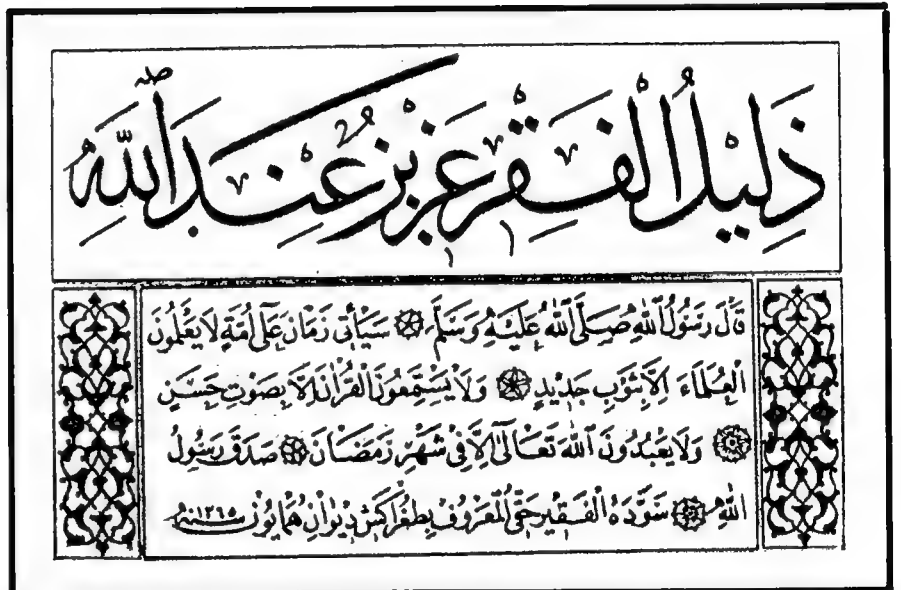 ذَلِيلُ الْفَقْرِ عَزِيزٌ عِنْدَ اللّٰهِ
قَالَ رَسُولُ اللّٰهِ صَلَّى اللّٰهُ عَلَيْهِ وَسَلَّمَ سَيَأْتِي زَمَانٌ عَلَى أُمَّةٍ لَا يَعْلَمُونَ
الْعُلَمَاءَ اِلَّا بِثَوْبٍ جَدِيدٍ وَلَا يَسْتَمِعُونَ الْقُرْاٰنَ اِلَّا بِصَوْتٍ حَسَنٍ
وَلَا يَعْبُدُونَ اللّٰهَ تَعَالٰى اِلَّا فِي شَهْرِ رَمَضَانَ صَدَقَ رَسُولُ
اللّٰهِ سَوَّدَهُ الْفَقِيرُ حَقِّي الْمَعْرُوفُ بِطُغْرَاكَش دِيوَانِ هُمَايُونْ سنه ١٣٦٥